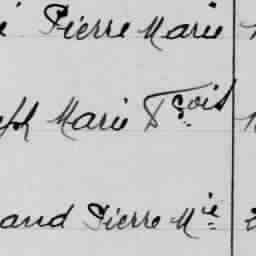 Pierre Marie
Marie Fçois
and Pierre Mie